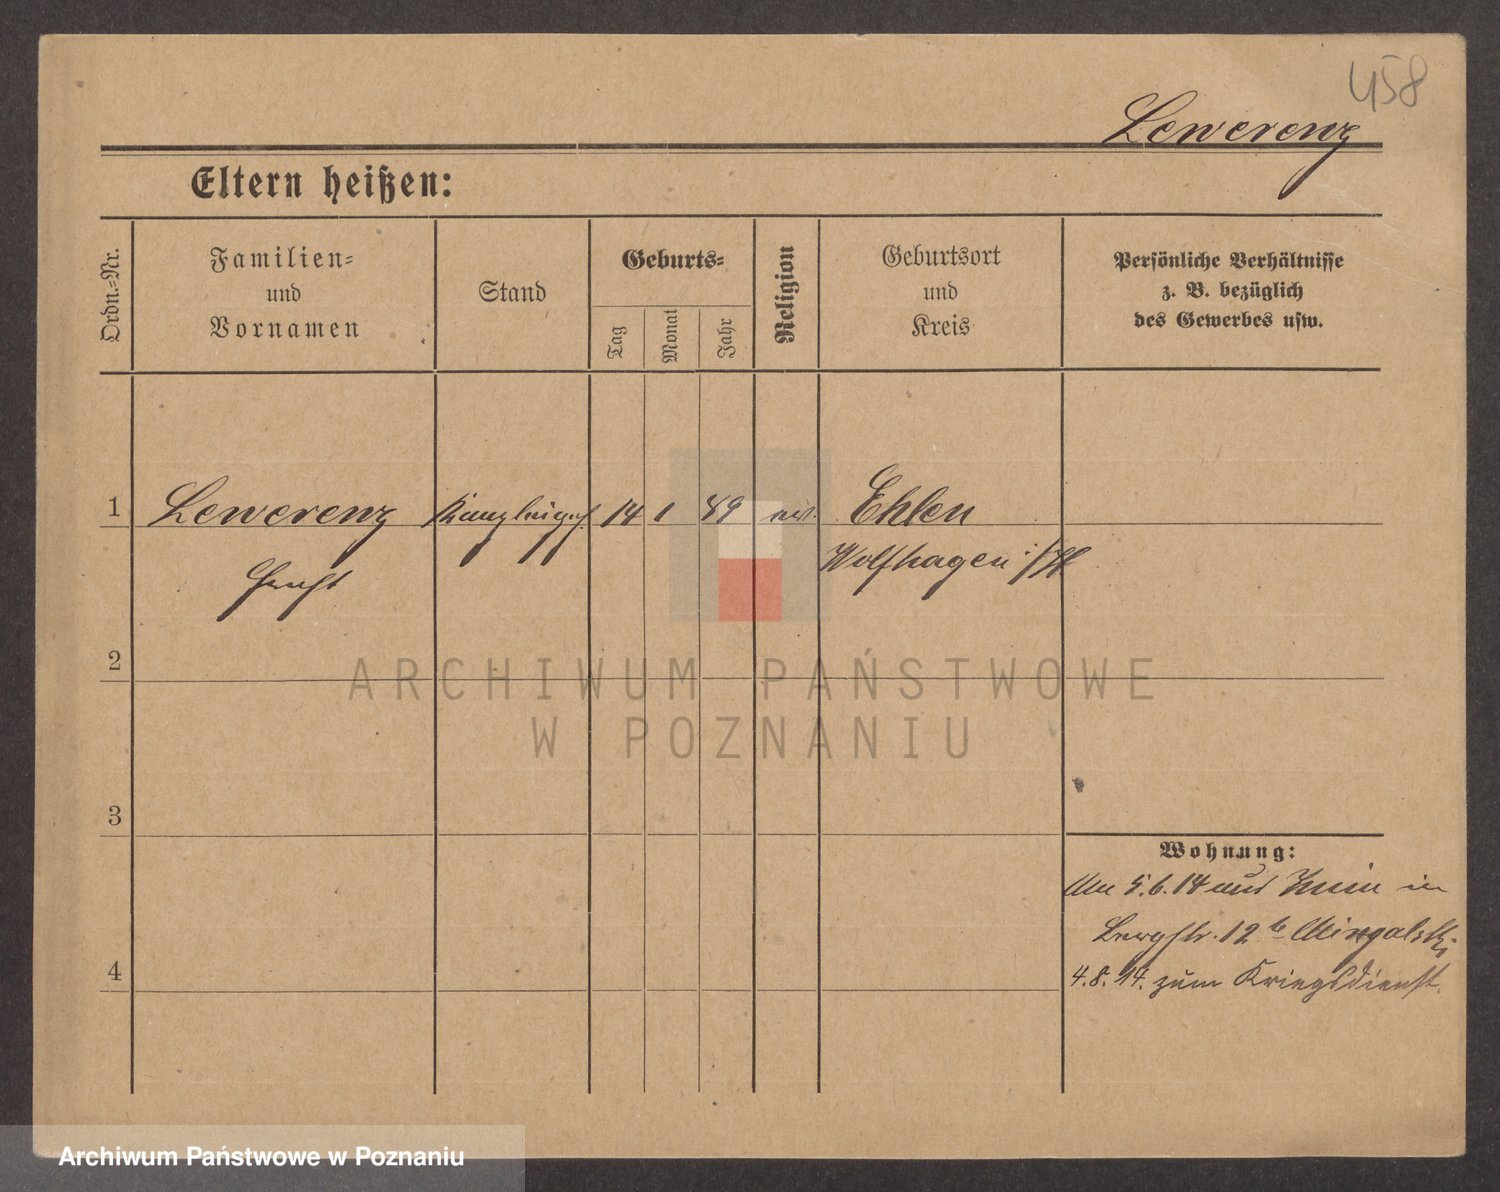 458
Lewerenz
Eltern heißen:
Ordn.=Nr.
Familien=
und
Vornamen
Stand
Geburts=
Tag
Monat
Jahr
Religion
Geburtsort
und
Kreis
Persönliche Verhältnisse
z. B. bezüglich
des Gewerbes usw.
1 Lewerenz Kanzleigeh. 14 1 89 ev. Ehlen
Wolfhagen
2
ARCHIWUM PAŃSTWOWE
W POZNANIU
3
Wohnung:
5.6.14 aus Znin in
Bergstr. 12b
4
4.8.14. zum Kriegsdienst.
Archiwum Państwowe w Poznaniu